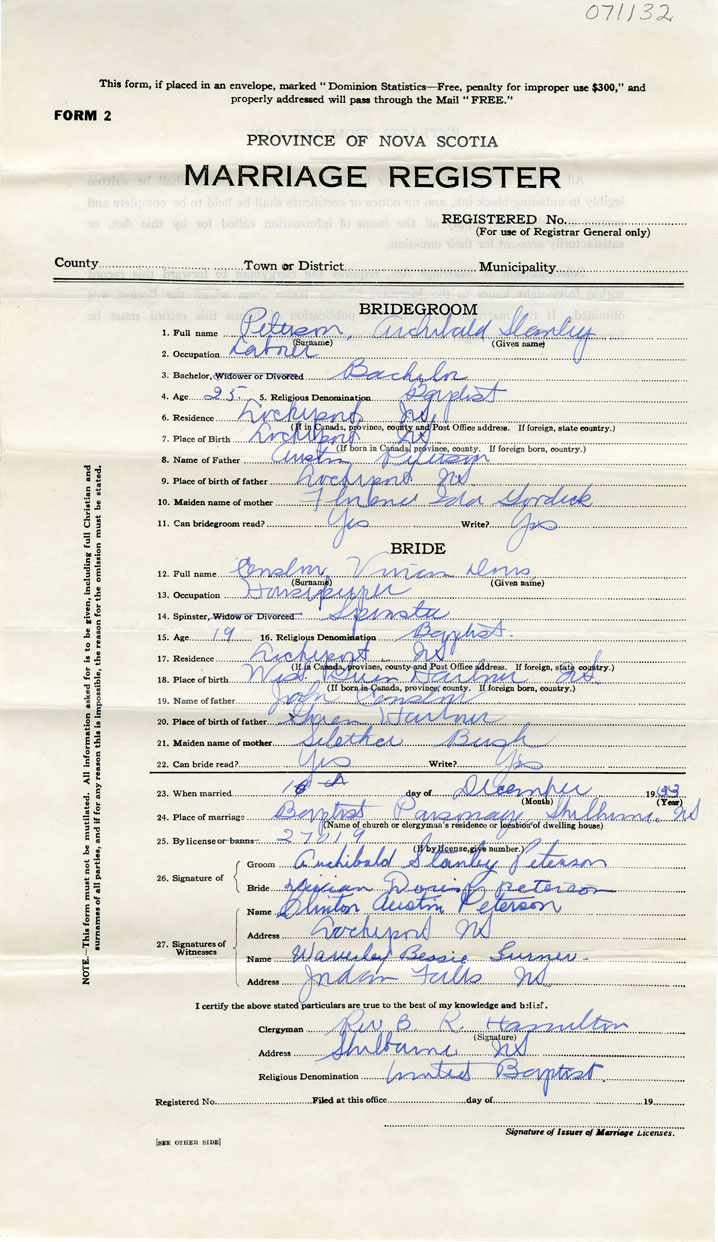 071132
This form, if placed in an envelope, marked "Dominion Statistics—Free, penalty for improper use $300," and
properly addressed will pass through the Mail "FREE."
FORM 2
PROVINCE OF NOVA SCOTIA
MARRIAGE REGISTER
REGISTERED No.
(For use of Registrar General only)
County Town or District Municipality
BRIDEGROOM
1. Full name Peterson, Archibald Stanley
(Surname) (Given name)
2. Occupation Labourer
3. Bachelor, Widower or Divorced Bachelor
4. Age 25 5. Religious Denomination Baptist
6. Residence Lockeport NS
(If in Canada, province, county and Post Office address. If foreign, state country.)
7. Place of Birth Lockeport NS
(If born in Canada, province, county. If foreign born, country.)
8. Name of Father Austin Peterson
9. Place of birth of father Lockeport NS
10. Maiden name of mother Florence Ida
11. Can bridegroom read? Yes Write? Yes
BRIDE
12. Full name Vivian Doris
(Surname) (Given name)
13. Occupation Housekeeper
14. Spinster, Widow or Divorced Spinster
15. Age 19 16. Religious Denomination Baptist
17. Residence Lockeport NS
(If in Canada, province, county and Post Office address. If foreign, state country.)
18. Place of birth West Green Harbour NS
(If born in Canada, province, county. If foreign born, country.)
19. Name of father John
20. Place of birth of father Green Harbour
21. Maiden name of mother Bush
22. Can bride read? Yes Write? Yes
23. When married day of December 1933
(Month) (Year)
24. Place of marriage Baptist Parsonage Shelburne NS
(Name of church or clergyman's residence or location of dwelling house)
25. By license or banns
(If by license, give number.)
26. Signature of Groom Archibald Stanley Peterson
Bride Vivian Doris Peterson
27. Signatures of Witnesses Name Clinton Austin Peterson
Address Lockeport NS
Name Waverley Bessie Turner
Address Jordan Falls NS
I certify the above stated particulars are true to the best of my knowledge and belief.
Clergyman Rev B. R. Hamilton
(Signature)
Address Shelburne NS
Religious Denomination United Baptist
Registered No. Filed at this office day of 19
Signature of Issuer of Marriage Licenses.
[SEE OTHER SIDE]
NOTE.—This form must not be mutilated. All information asked for is to be given, including full Christian and
surnames of all parties, and if for any reason this is impossible, the reason for the omission must be stated.